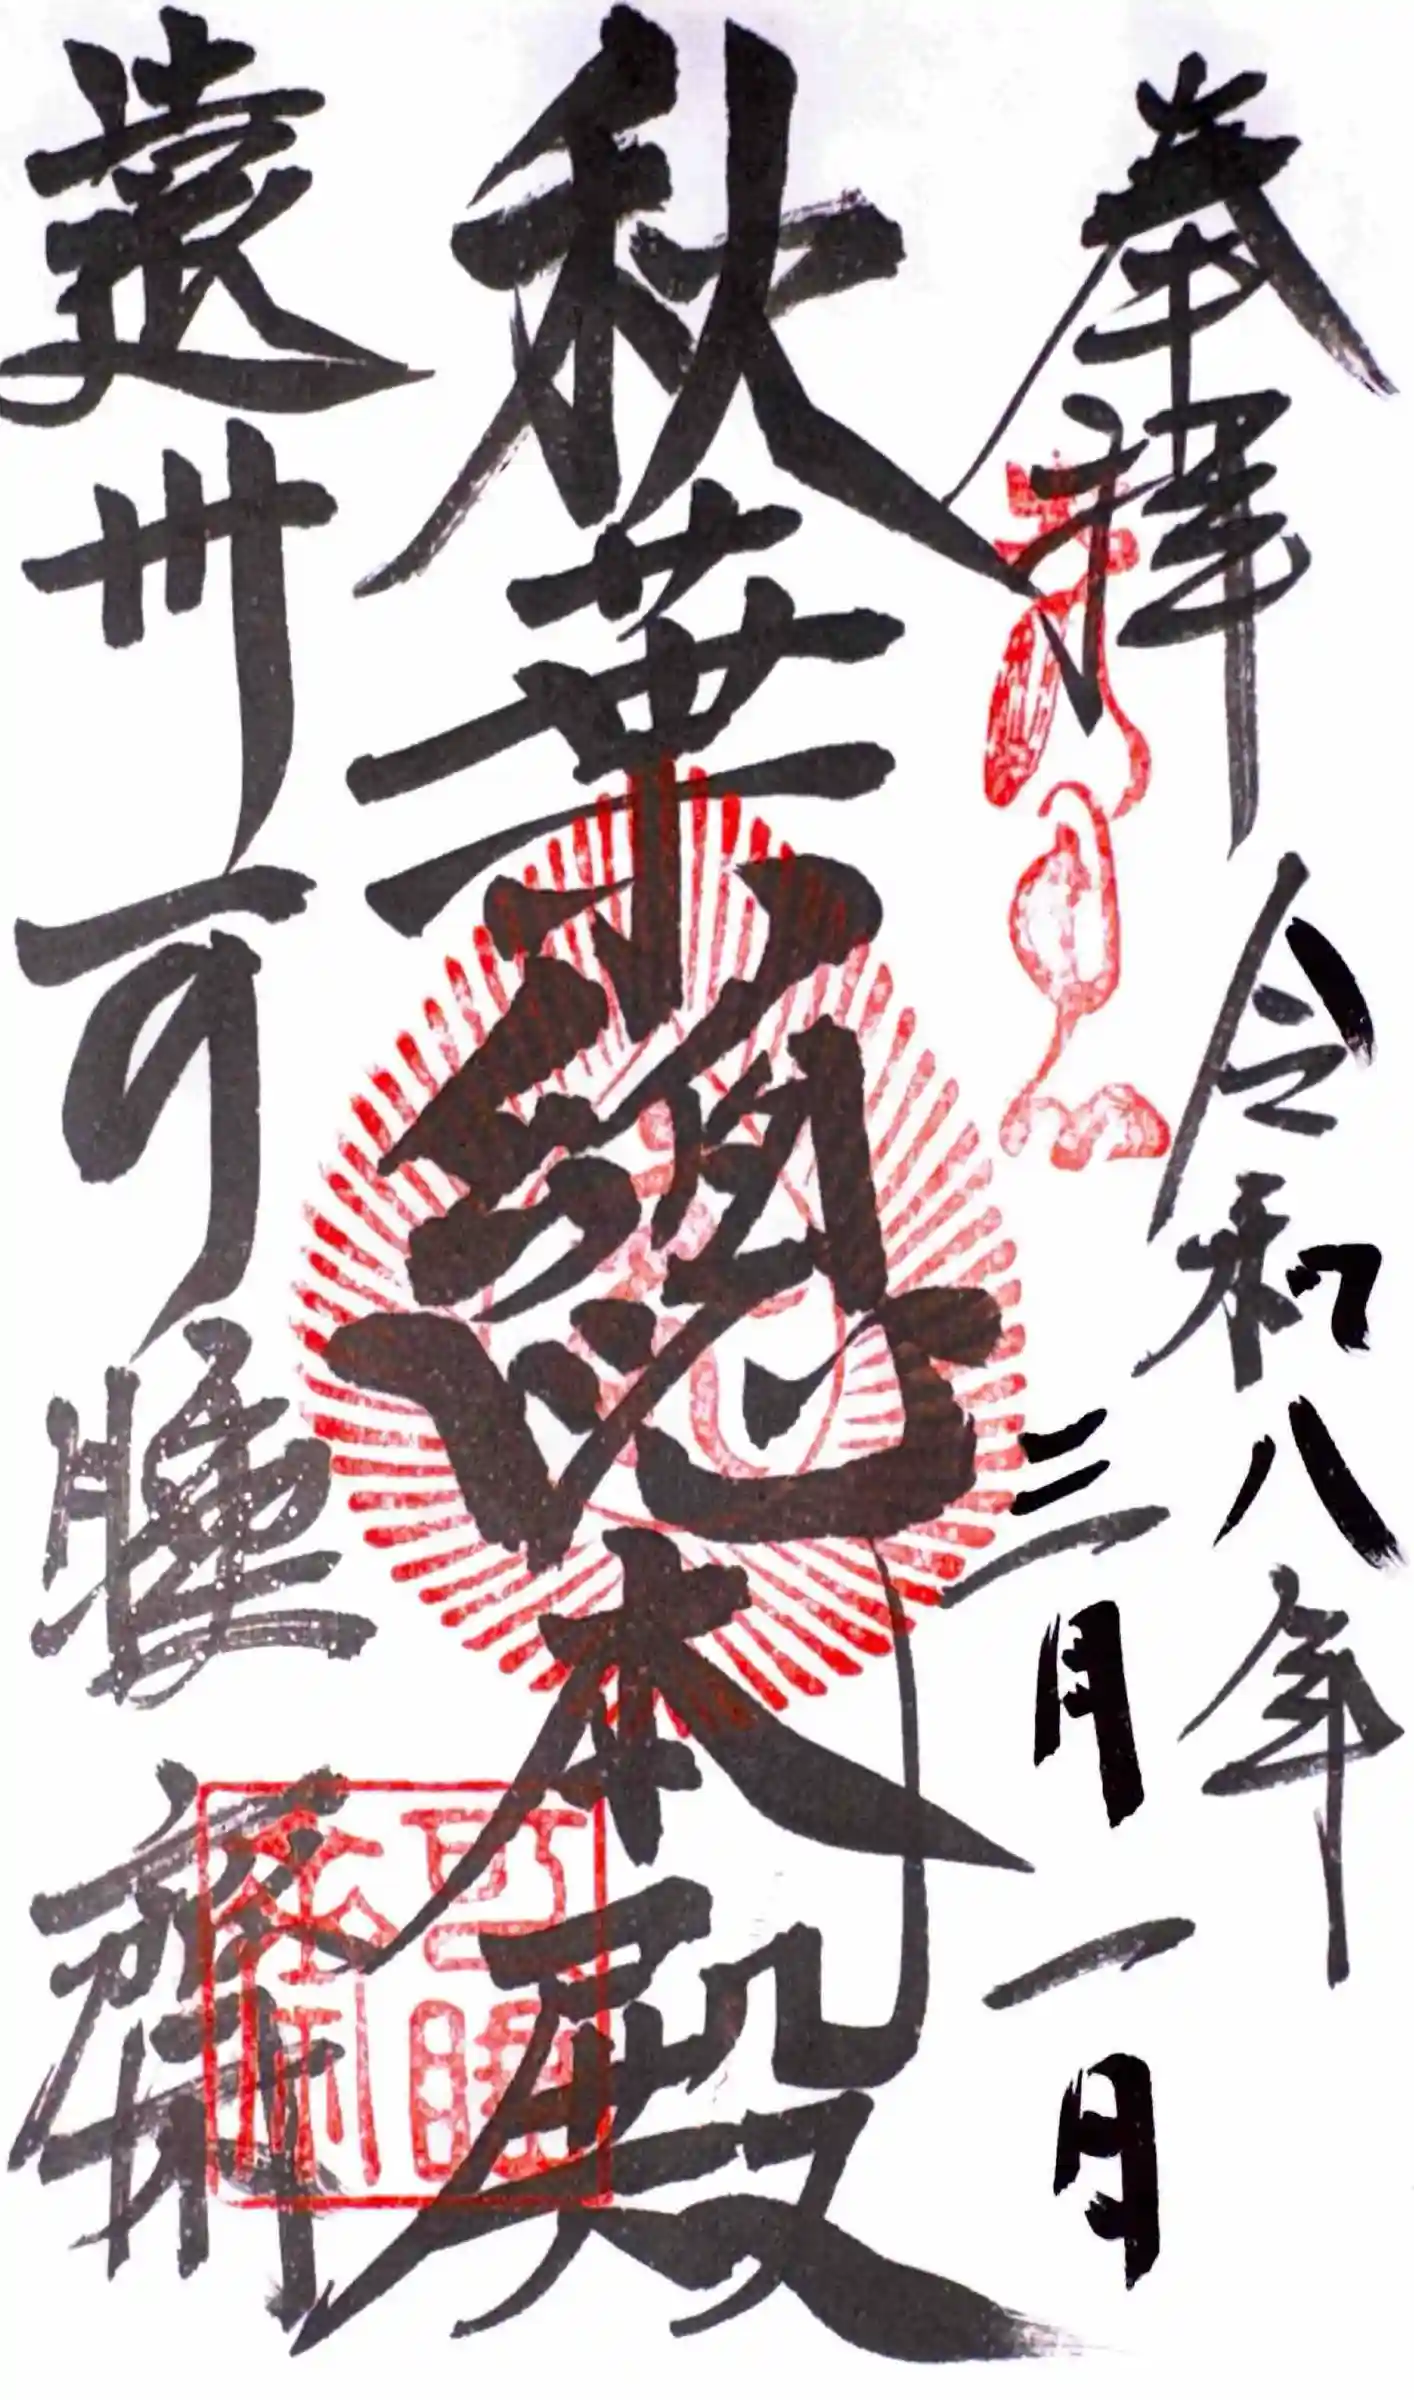 奉拝
令和八年
三月一日
秋葉總本殿
遠州可睡齋
可睡
齋